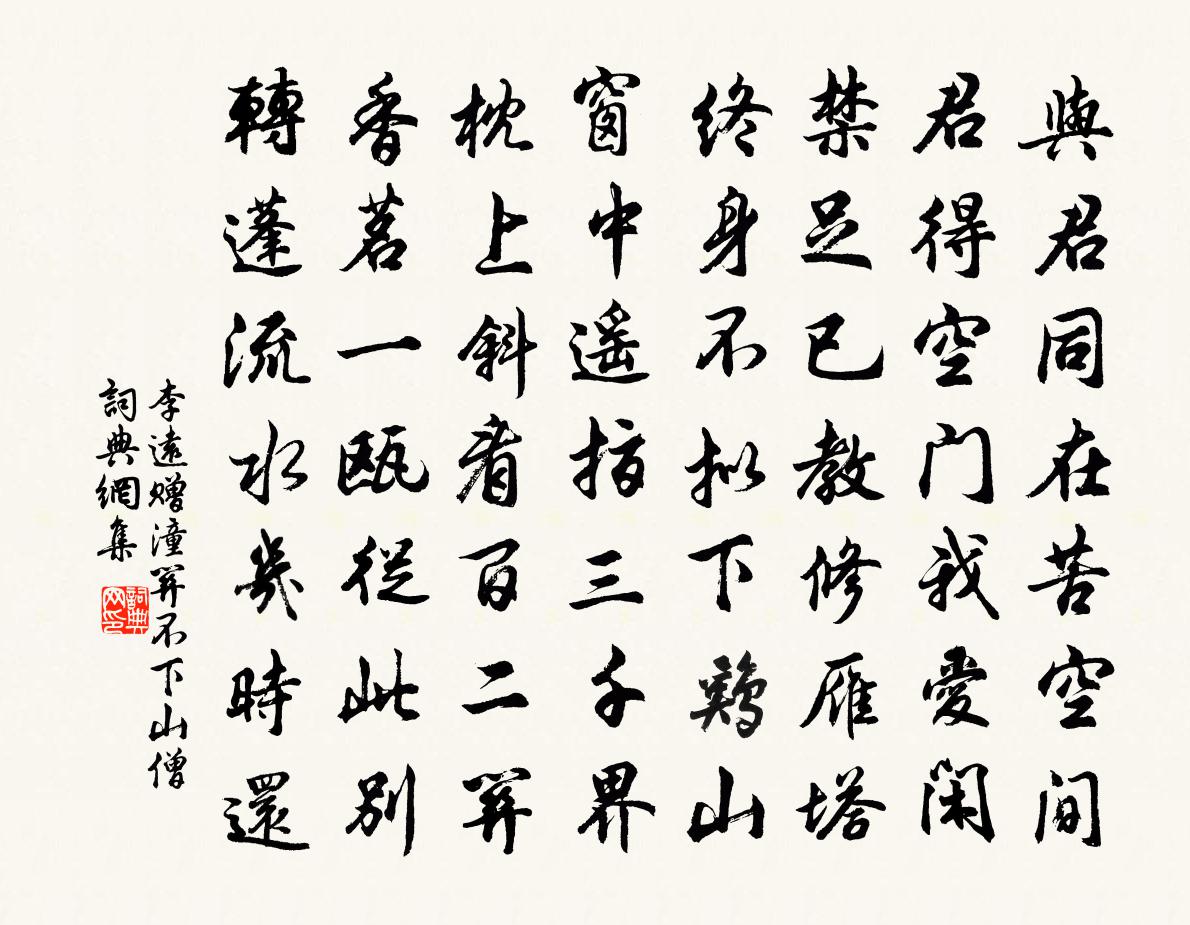 與君同在苦空間
君得空门我愛闲
禁足已教修雁塔
終身不拟下鷄山
窗中遥指三千界
枕上斜看百二關
香茗一瓯從此别
轉蓬流水幾時還
李遠贈潼關不下山僧
詞典網集
詞典网印